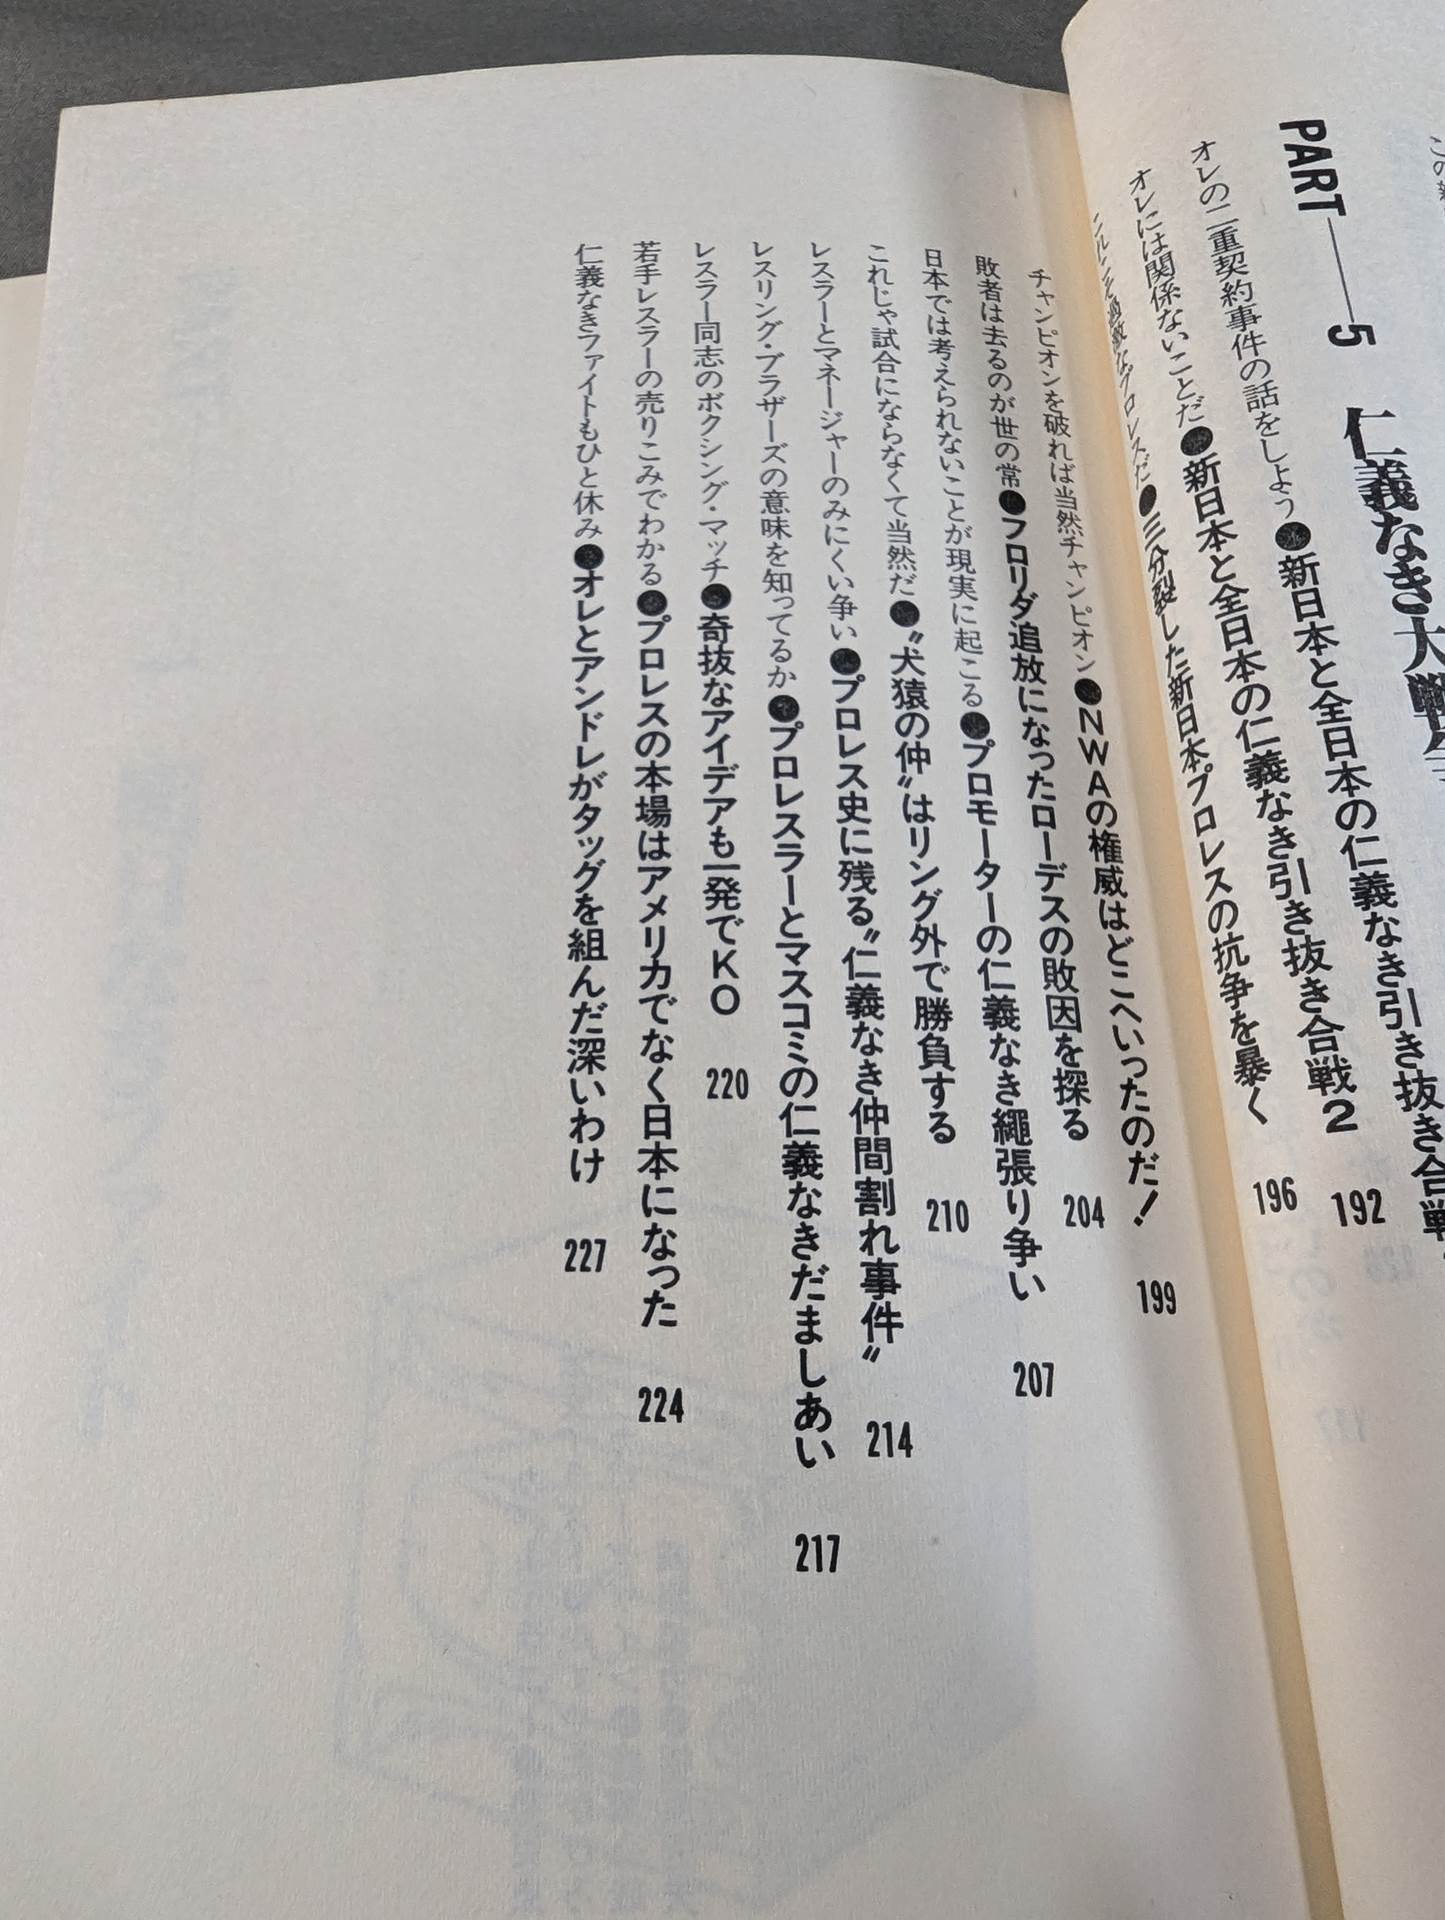 PART—5 仁義なき大戦争
オレの二重契約事件の話をしよう●新日本と全日本の仁義なき引き抜き合戦
オレには関係ないことだ●新日本と全日本の仁義なき引き抜き合戦2 192
過激なプロレスだ●三分裂した新日本プロレスの抗争を暴く 196
チャンピオンを破れば当然チャンピオン●NWAの権威はどこへいったのだ！ 199
敗者は去るのが世の常●フロリダ追放になったローデスの敗因を探る 204
日本では考えられないことが現実に起こる●プロモーターの仁義なき縄張り争い 207
これじゃ試合にならなくて当然だ●〝犬猿の仲〟はリング外で勝負する 210
レスラーとマネージャーのみにくい争い●プロレス史に残る〝仁義なき仲間割れ事件〟 214
レスリング・ブラザーズの意味を知ってるか●プロレスラーとマスコミの仁義なきだましあい 217
レスラー同志のボクシング・マッチ●奇抜なアイデアも一発でKO 220
若手レスラーの売りこみでわかる●プロレスの本場はアメリカでなく日本になった 224
仁義なきファイトもひと休み●オレとアンドレがタッグを組んだ深いわけ 227